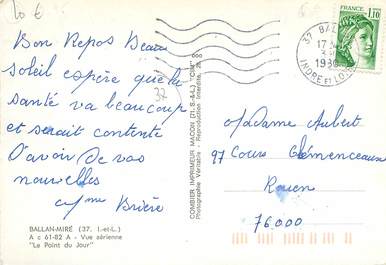 Bon Repos Beau
soleil espère que la
santé va beaucoup
et serait contente
D'avoir de vos
nouvelles
Mme Brière
BALLAN-MIRÉ (37. I.-et-L.)
A c 61-82 A - Vue aérienne
"Le Point du Jour"
COMBIER IMPRIMEUR MACON (71. S.-&-L.) "CIM"
Photographie Véritable - Reproduction Interdite
FRANCE
1,10
37 BALLAN
17
1980
INDRE ET LOIRE
Madame Aubert
97 Cours Clémenceaux
Rouen
76000
32